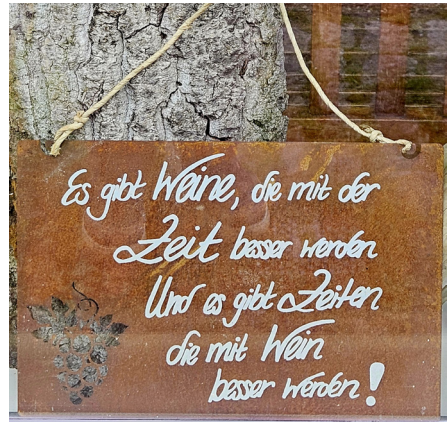 Es gibt Weine, die mit der
Zeit besser werden
Und es gibt Zeiten
die mit Wein
besser werden!